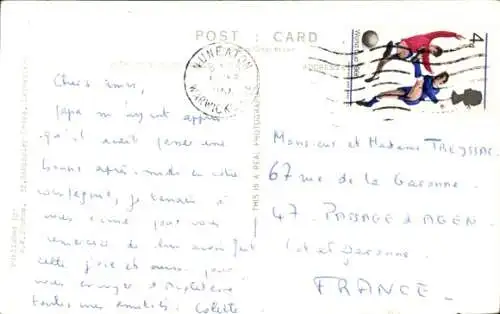 POST CARD
NUNEATON
WARWICKSHIRE
4d
World Cup 1966
THIS IS A REAL PHOTOGRAPH
Published by
Chers amis,
Papa m'ayant appris
qu'il avait passé une
bonne après-midi en votre
compagnie, je tenais à
vous écrire pour vous
remercier de lui avoir fait
cette joie et aussi pour
vous envoyer d'Angleterre
toutes mes amitiés. Colette
Monsieur et Madame TREYSSAC
67 rue de la Garonne
47. PASSAGE d'AGEN
Lot et Garonne.
FRANCE.